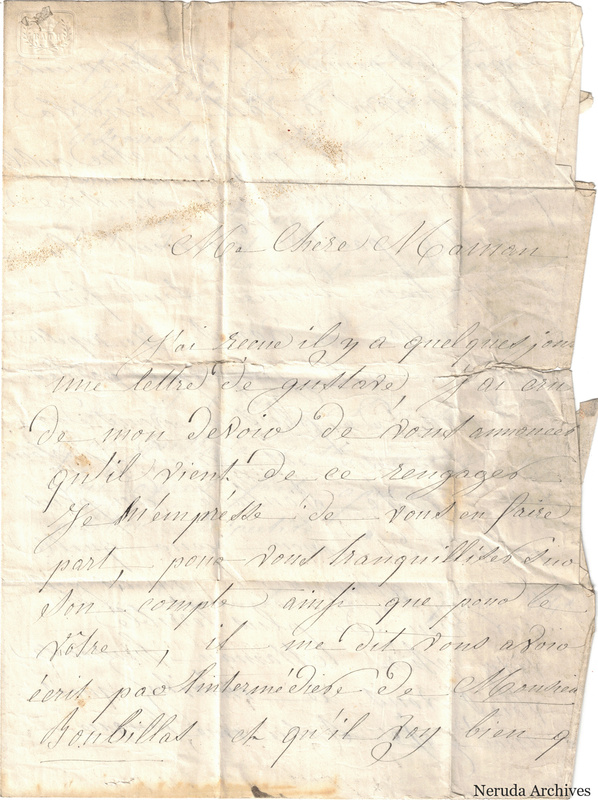 Ma Chère Maman
J'ai recue il y a quelques jour
une lettre de gustave, J'ai cru
de mon devoir de vous annoncer
qu'il vient de ce rengager
Je m'empresse de vous en faire
part, pour vous tranquilliser sur
son compte ainsi que pour le
vôtre, il me dit vous avoir
écrit par l'intermédière de Monsieu
Boubillas et qu'il voy bien q
Neruda Archives